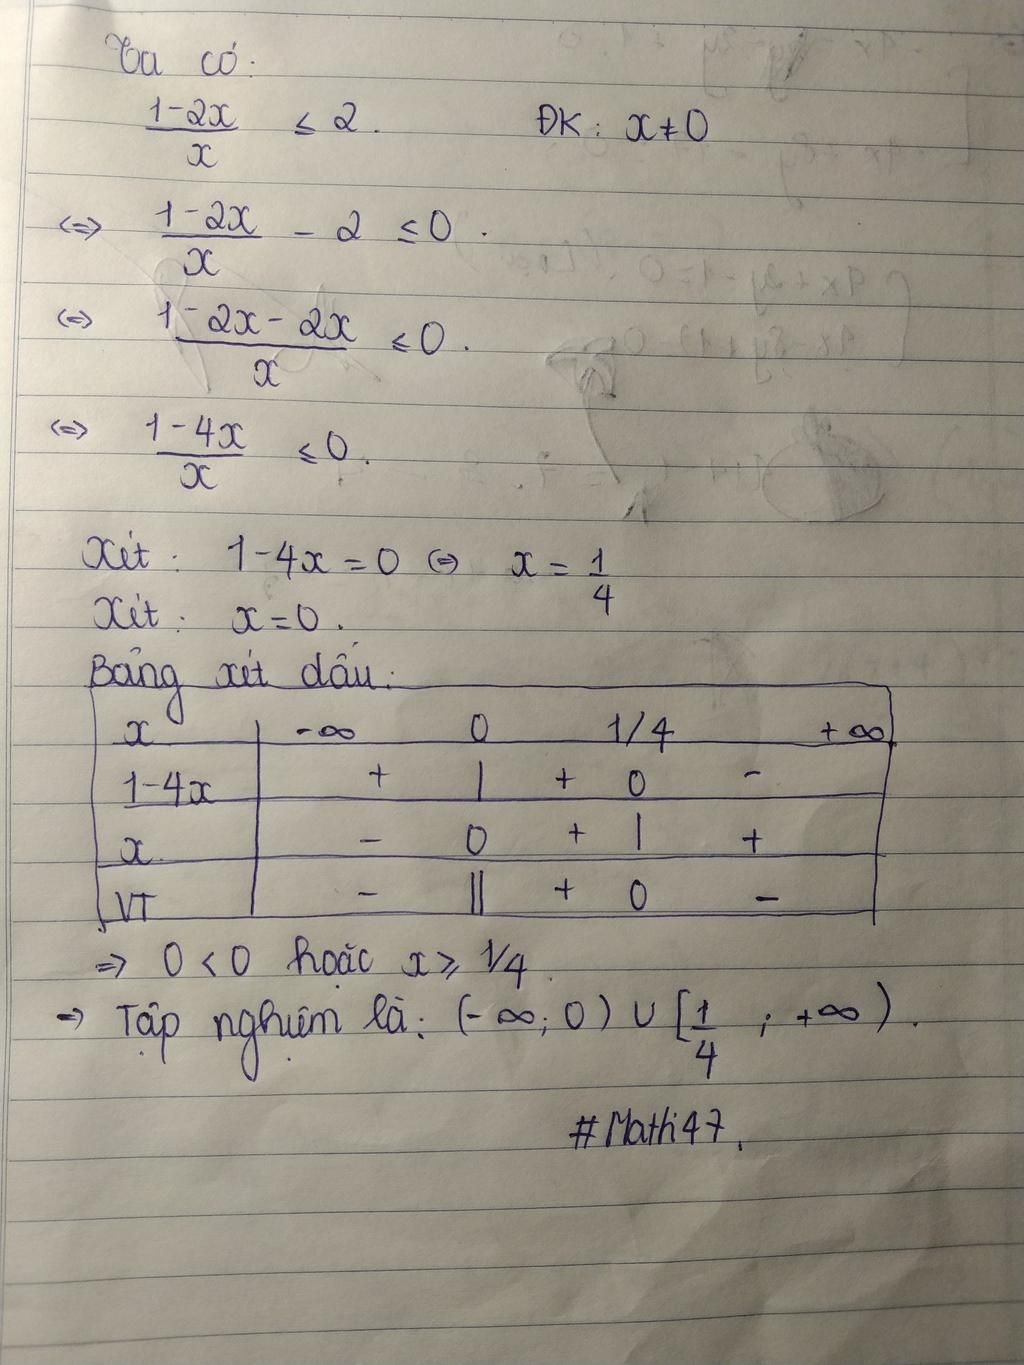 Ta có:
1-2x/x ≤ 2. ĐK: x≠0
<=> 1-2x/x - 2 ≤ 0.
<=> 1-2x-2x/x ≤ 0.
<=> 1-4x/x ≤ 0.
Xét: 1-4x=0 <=> x = 1/4
Xét: x=0.
Bảng xét dấu:
x -∞ 0 1/4 +∞
1-4x + | + 0 -
x - 0 + | +
VT - || + 0 -
=> 0<0 hoặc x ≥ 1/4.
=> Tập nghiệm là: (-∞; 0) ∪ [1/4 ; +∞).
#Math47.